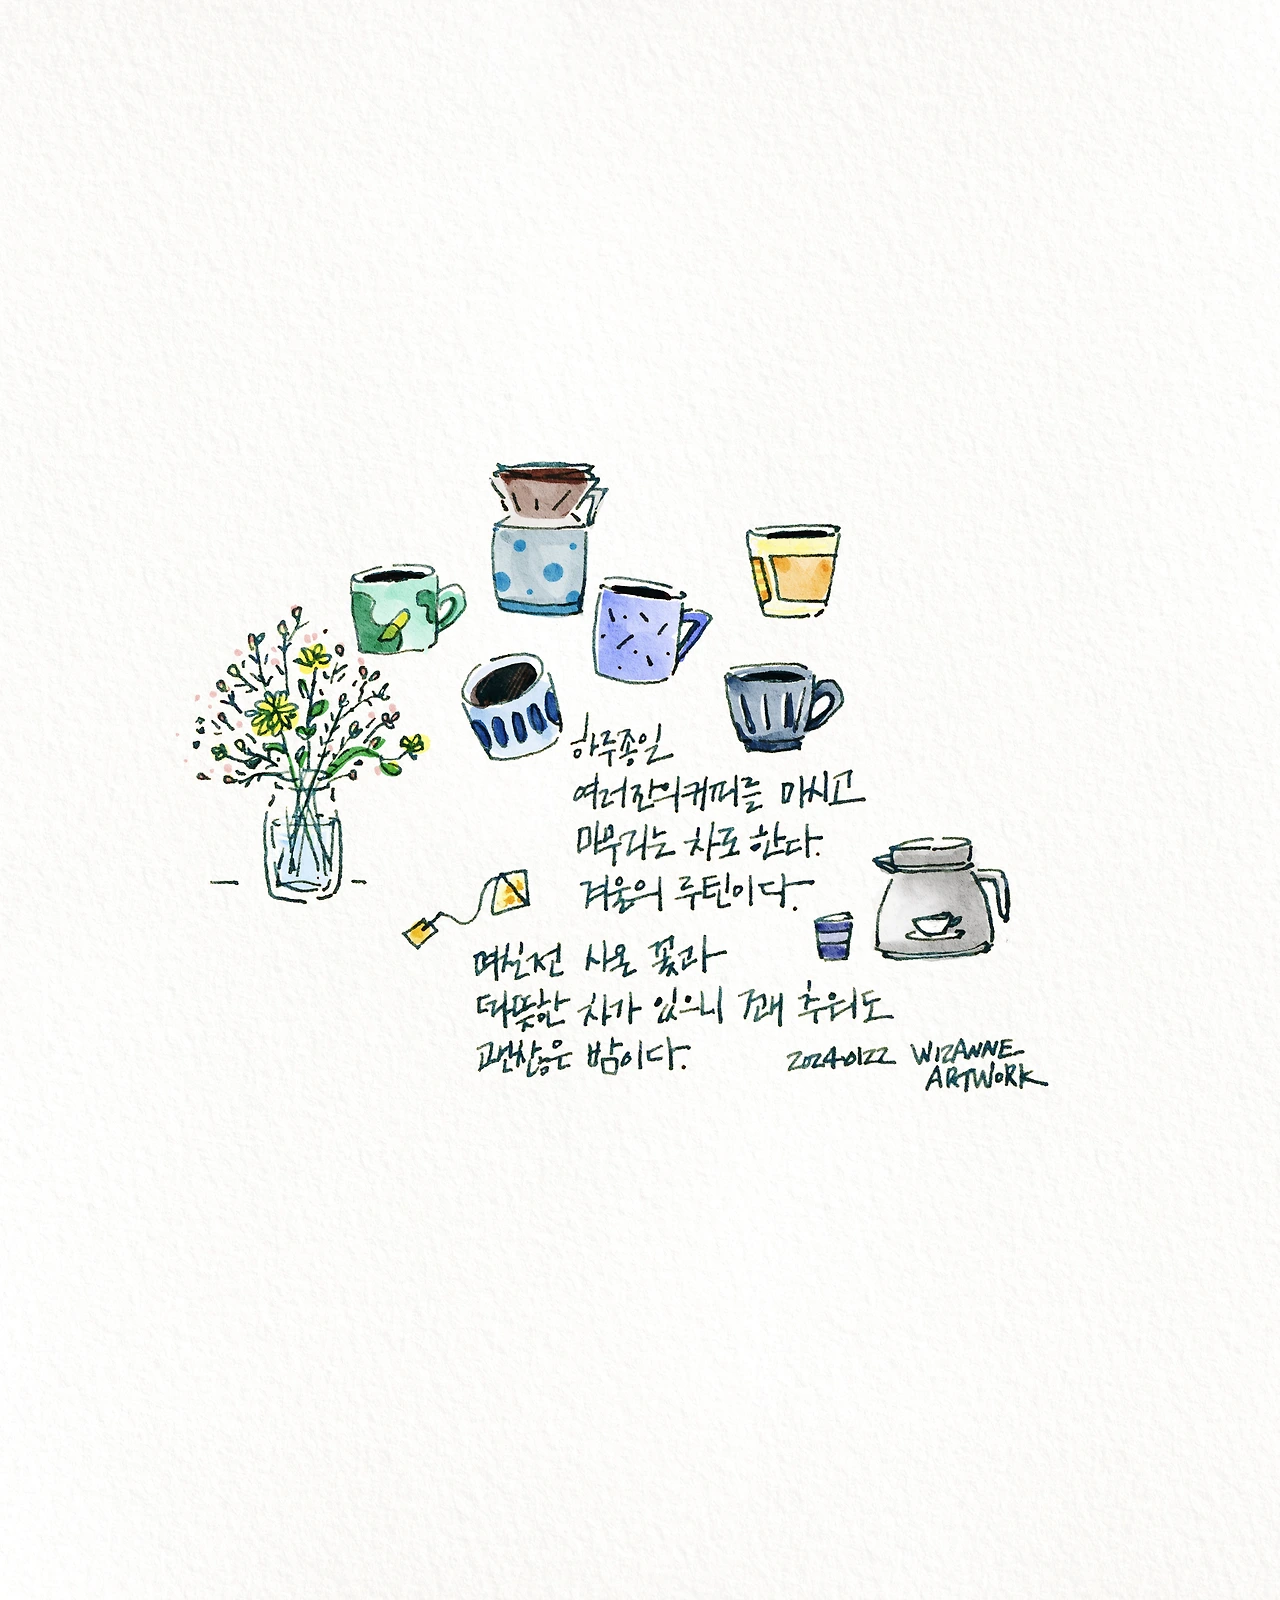 하루종일
여러잔의커피를 마시고
마무리는 차로 한다.
겨울의 루틴이다.
며칠전 사온 꽃과
따뜻한 차가 있으니 꽤 추위도
괜찮은 밤이다.
20240122 WIZANNE
ARTWORK